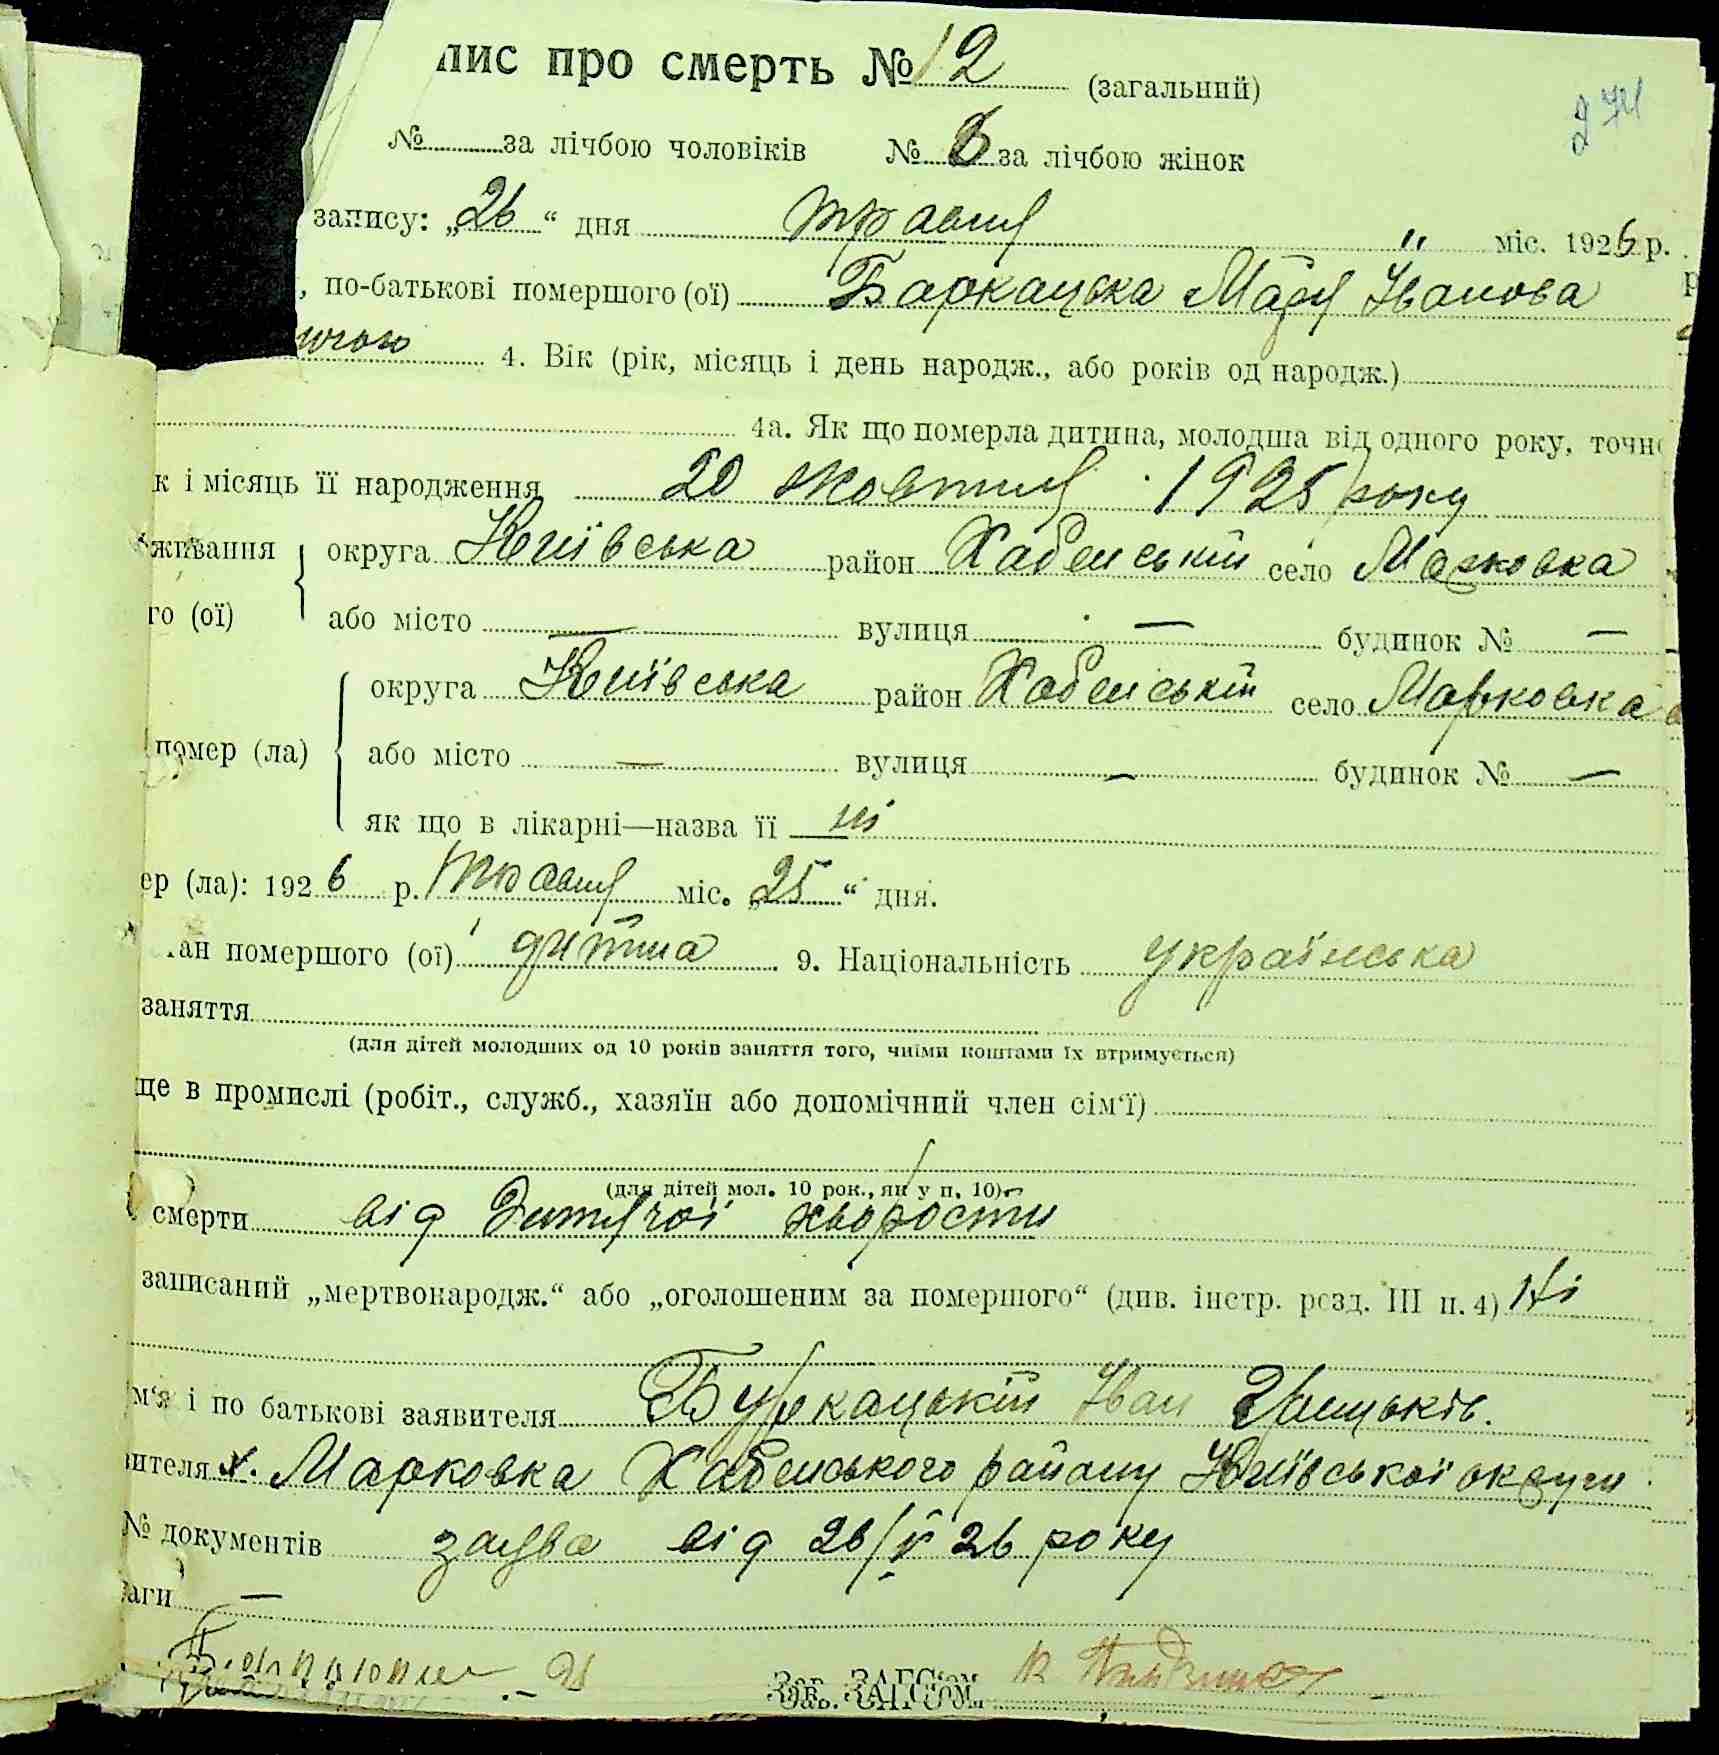 пис про смерть № 12 (загальний)
274
№ за лічбою чоловіків № 6 за лічбою жінок
запису: „26“ дня травня " міс. 1926 р.
, по-батькові помершого (ої) Баркацька Марія Іванова
4. Вік (рік, місяць і день народж., або років од народж.)
4а. Як що померла дитина, молодша від одного року, точн
к і місяць її народження 20 жовтня 1925 року
живання округа Київська район Хабенський село Марковка
го (ої) або місто — вулиця — будинок № —
округа Київська район Хабенський село Марковка
помер (ла) або місто — вулиця — будинок № —
як що в лікарні—назва її ні
ер (ла): 1926 р. Травня міс. „25“ дня.
ан помершого (ої) дитина 9. Національність українська
заняття
(для дітей молодших од 10 років заняття того, чиїми коштами їх втримується)
ще в промислі (робіт., служб., хазяїн або допомічний член сім‘ї)
(для дітей мол. 10 рок., як у п. 10)
смерти від Дитячої хворости
записаний „мертвонародж.“ або „оголошеним за помершого“ (див. інстр. розд. III п. 4) Ні
м‘я і по батькові заявителя Буркацькій Іван Грицьків.
вителя х. Марковка Хабенського району Київської округи
№ документів заява від 26/V 26 року
аги —
Зав. ЗАГС‘ом